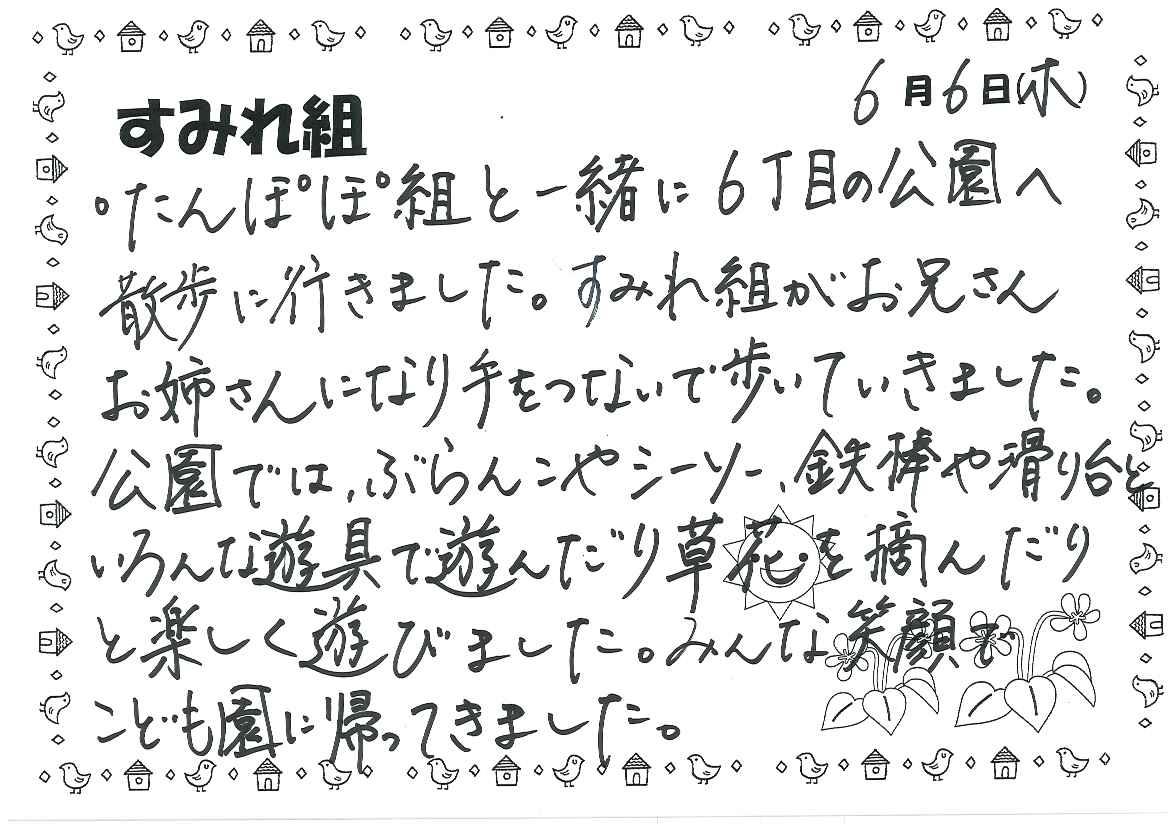 6月6日(木)
すみれ組
。たんぽぽ組と一緒に6丁目の公園へ
散歩に行きました。すみれ組がお兄さん
お姉さんになり手をつないで歩いていきました。
公園では、ぶらんこやシーソー、鉄棒や滑り台と
いろんな遊具で遊んだり草花を摘んだり
と楽しく遊びました。みんな笑顔で
こども園に帰ってきました。